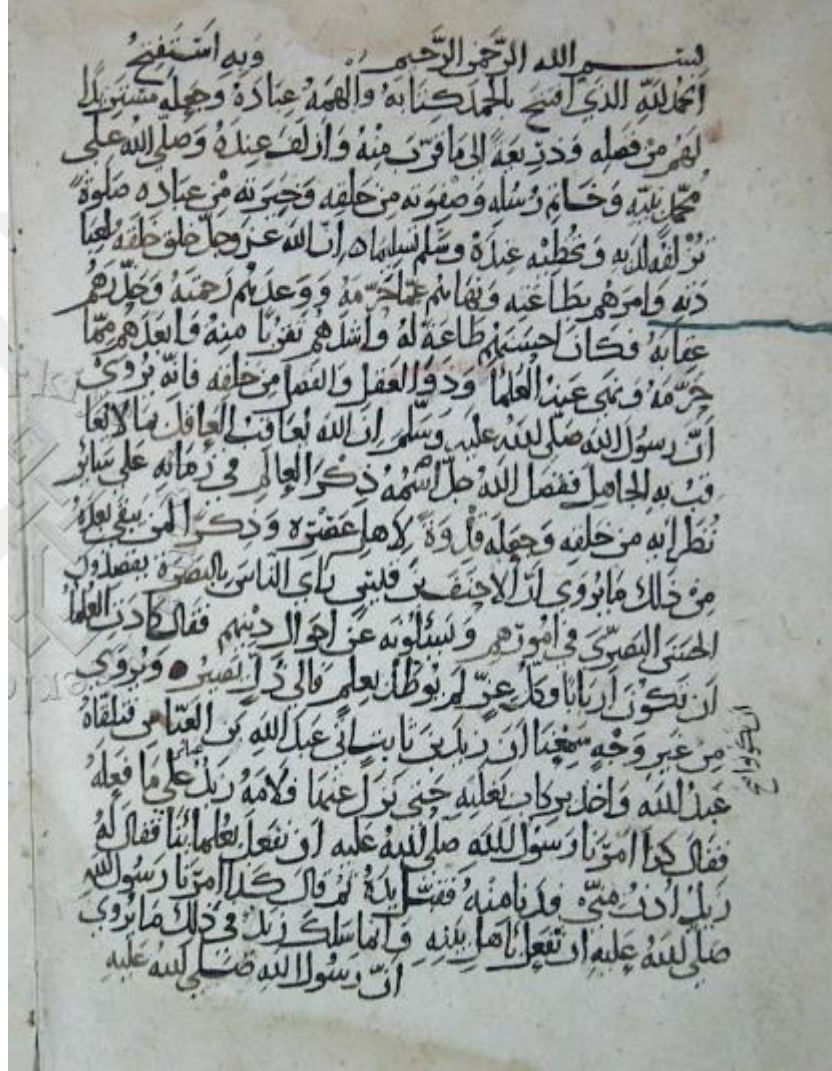 بسم الله الرَّحمن الرَّحيم وَبِهِ اَستفتح
اَلحمدُ لله الذي افتتح بالحمد كتابهُ وَالهمهُ عبادهُ وجعله مستزيدا
لهُم من فضله وَذريعَةً الى ما قرّب منهُ وَازلف عندهُ وَصلّى الله على
محمّد نبيّه وَخاتم رُسله وَصفوته من خلقه وَخيرته من عباده صَلوةً
تزلفه لديه وتحظيه عندهُ وسلم تسليما ان الله عز وجل خلق خلقه
وامرهُم بطاعته ونهاهم عمّا حرّمهُ ووعدهم رحمتهُ وَحذّرهُم
عقابهُ فكان احسنهم طاعة لهُ واشدهُم تقربًا منهُ وابعدهُم ممّا
حرّمهُ ونهى عنهُ العُلما وذوو العقل والفضل من خلقه فانّه يُروى
أنّ رسُول الله صلّى الله عليه وسلّم ان الله يُعاقب العاقل بما لا يُعا
قب به الجاهل ففضل اللهُ جلّ اسمهُ ذكر العالم في زمانه على سائر
نُظرائه من خلقه وجعله قدوةً لاهل عصره وذكرا لمن يبقى بعدهُ
من ذلك ما يروى انّ الاحنف بن قيس رأى الناس بالبصرة يقصدون
الحسن البصري في امورهم ويسئلونه عن احوال دينهم فقال كادت العُلما
ان تكون اربابا وكلّ عزّ لم يوطد بعلم فالى ذل يصير وَيُروى
من غير وجه سمعنا ان زيد بن ثابت اتى عبد الله بن العبّاس فتلقاهُ
عبد الله واخذ بركاب بغلته حتى نزل عنها فلامهُ زيد على ما فعلهُ
فقال كذا امرنا رسول الله صلى اللهُ عليه ان نفعل بعلمائنا فقال لهُ
زيد ادن منّي فدنا منهُ فقبّل يدهُ ثم قال كذا امرنا رسول الله
صلى اللهُ عليه ان نفعل باهل بيته وانما سلك زيد في ذلك ما يروى
انّ رسول الله صلى الله عليه